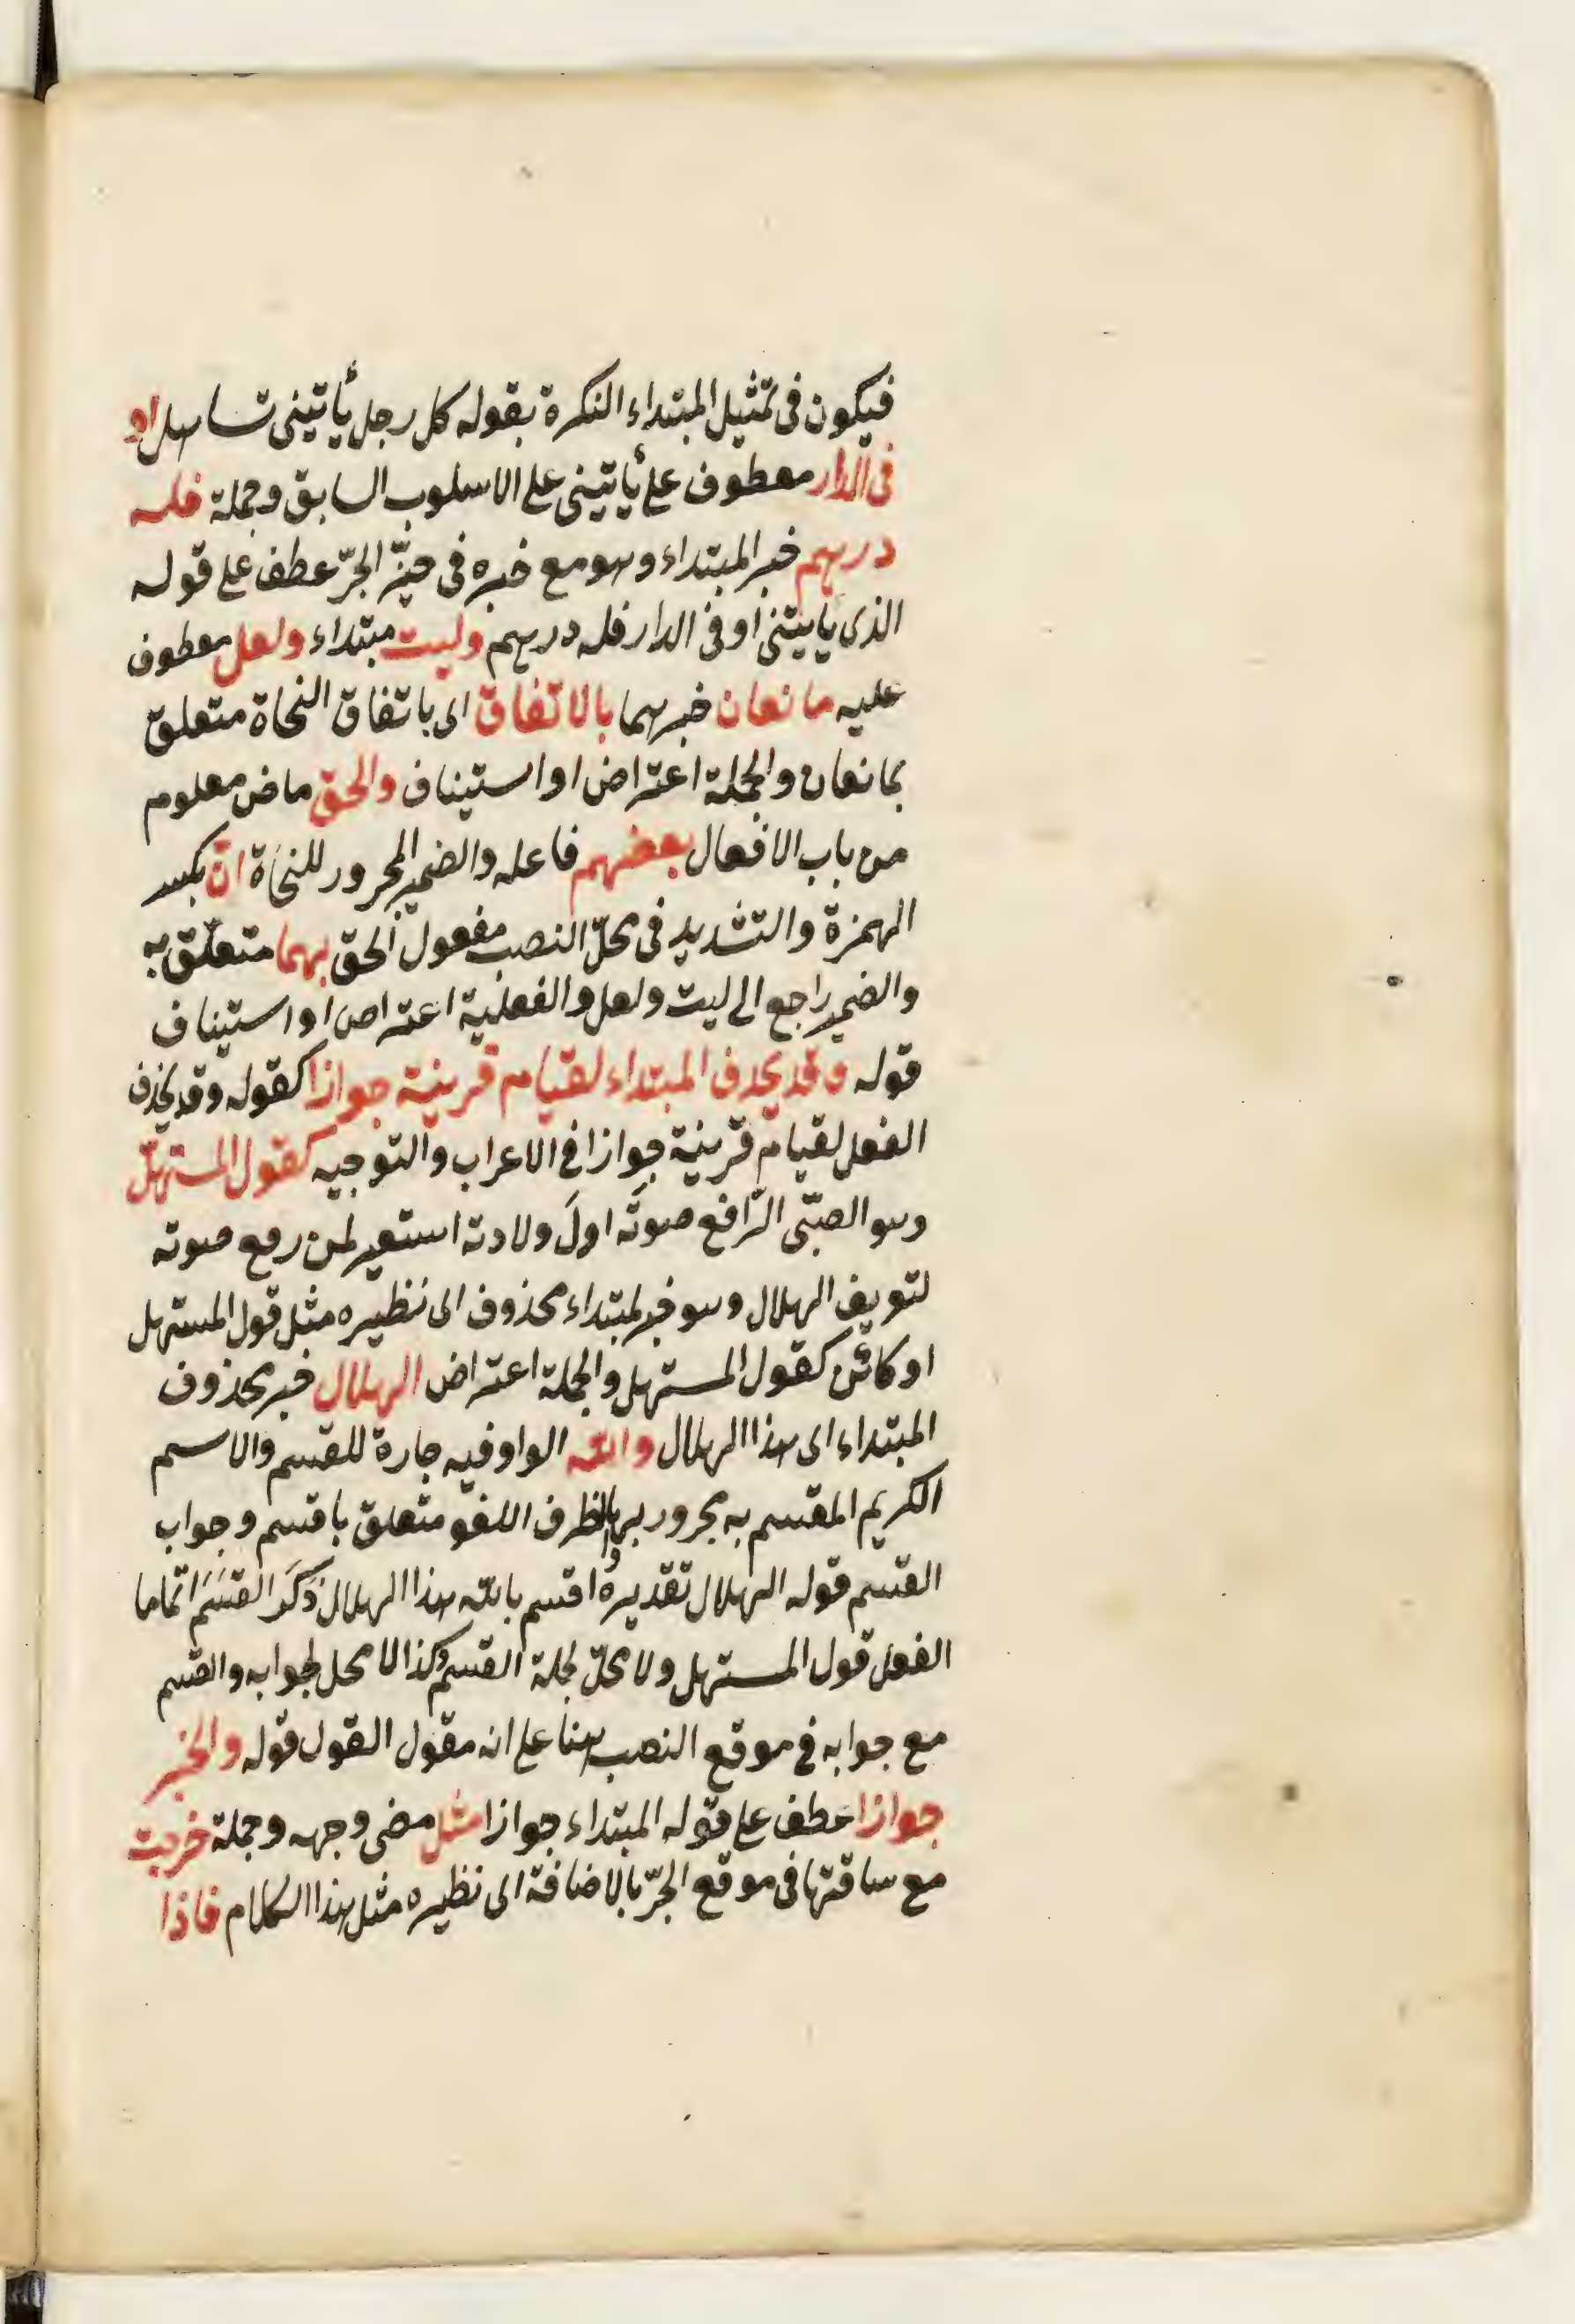 فيكون فى تمثيل المبتداء النكرة بقوله كل رجل يأتينى تساهل او
فى الدار معطوف على يأتينى على الاسلوب السابق وجملة فله
درهم خبر المبتداء وهو مع خبره فى حيّز الجرّ عطف على قوله
الذى يأتينى او فى الدار فله درهم وليت مبتداء ولعل معطوف
عليه مانعان خبرهما بالاتفاق اى باتفاق النحاة متعلق
بمانعان والجملة اعتراض او استيناف والحق ماض معلوم
من باب الافعال بعضهم فاعله والضمير المجرور للنحاة انّ بكسر
الهمزة والتشديد فى محلّ النصب مفعول الحق بهما متعلّق به
والضمير راجع الى ليت ولعل والفعلية اعتراض او استيناف
قوله وقد يحذف المبتداء لقيام قرينة جوازا كقوله وقد يحذف
الفعل لقيام قرينة جوازا فى الاعراب والتوجيه كقول المستهلّ
وهو الصبّى الرّافع صوته اولَ ولادته استعير لمن رفع صوته
لتعريف الهلال وهو خبر لمبتداء محذوف اى نظيره مثل قول المستهل
او كائن كقول المستهل والجملة اعتراض الهلال خبر محذوف
المبتداء اى هذا الهلال والله الواو فيه جارة للقسم والاسم
الكريم المقسم به مجرور بها والظرف اللغو متعلق باقسم وجواب
القسم قوله الهلال تقديره اقسم بالله هذا الهلال ذَكَر القسَمَ اتماما
الفعل قول المستهل ولا محلّ لجملة القسم وكذا لا محل لجوابه والقسم
مع جوابه فى موقع النصب هنا على انه مقول القول قوله والخبر
جوازا عطف على قوله المبتداء جوازا مثل مضى وجهه وجملة خرجت
مع ساقتها فى موقع الجرّ بالاضافة اى نظيره مثل هذا الكلام فاذا